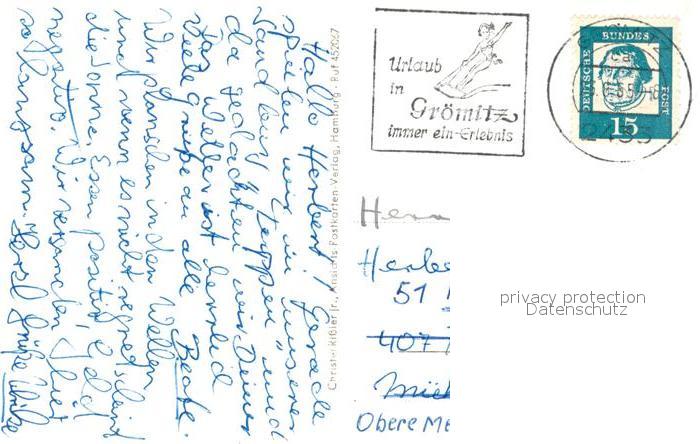 Hallo Herbert! Gerade
spielen wir in unserer
Sandburg "Steppen" und
da gedachten wir Deiner
Das Wetter ist herrlich
Viele Grüße an alle Beate.
Wir planschen in den Wellen
und wenn es nicht regnet, scheint
die Sonne. Essen positiv, Geld
negativ. Wir
Herzl. Grüße Ulrike
Christel Kißler jr., Ansichts-Postkarten-Verlag, Hamburg · Ruf 452067
Urlaub
in
Grömitz
immer ein Erlebnis
DEUTSCHE BUNDESPOST
15
2433
Herrn
Herbe
51
407
Obere Me
privacy protection
Datenschutz